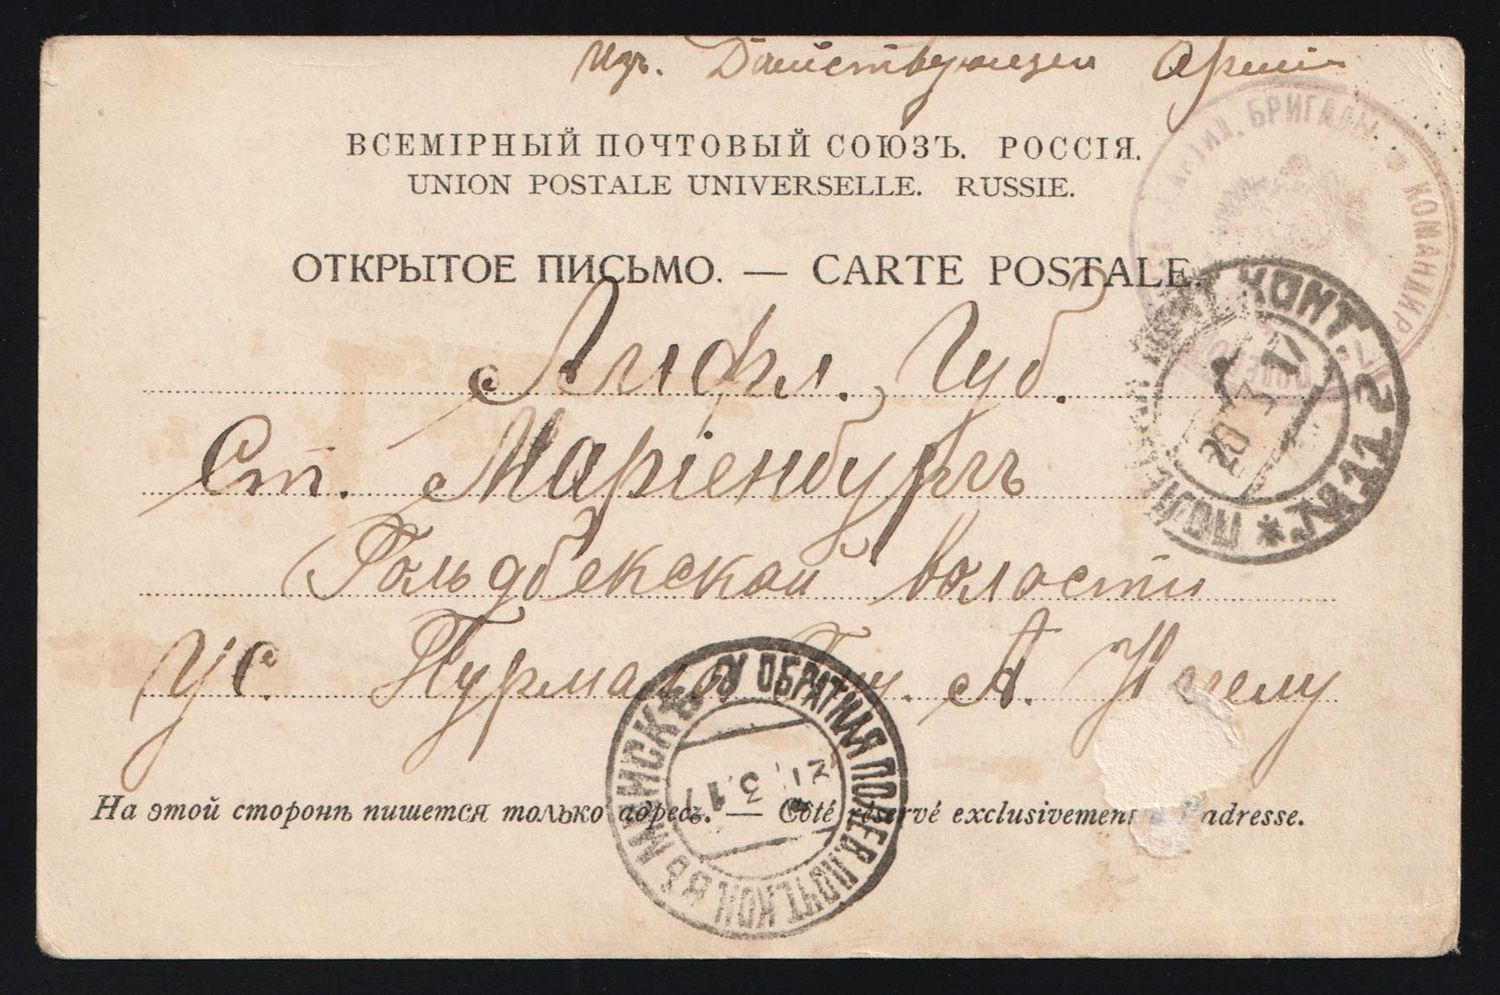 Изъ. Дѣйствующей Арміи
ВСЕМІРНЫЙ ПОЧТОВЫЙ СОЮЗЪ. РОССІЯ.
UNION POSTALE UNIVERSELLE. RUSSIE.
ОТКРЫТОЕ ПИСЬМО. — CARTE POSTALE.
БРИГАДЫ * КОМАНДИР
КОНТ.
20 3 17
Лифл. Губ.
Ст. Маріенбургъ
Гольдбекской волости
ус.
А.
ОБРАТНАЯ ПОЛЕВ. ПОЧТ. КОН. ВЪ МИНСКѢ
3.17
На этой сторонѣ пишется только адресъ. — Côté réservé exclusivement à l'adresse.